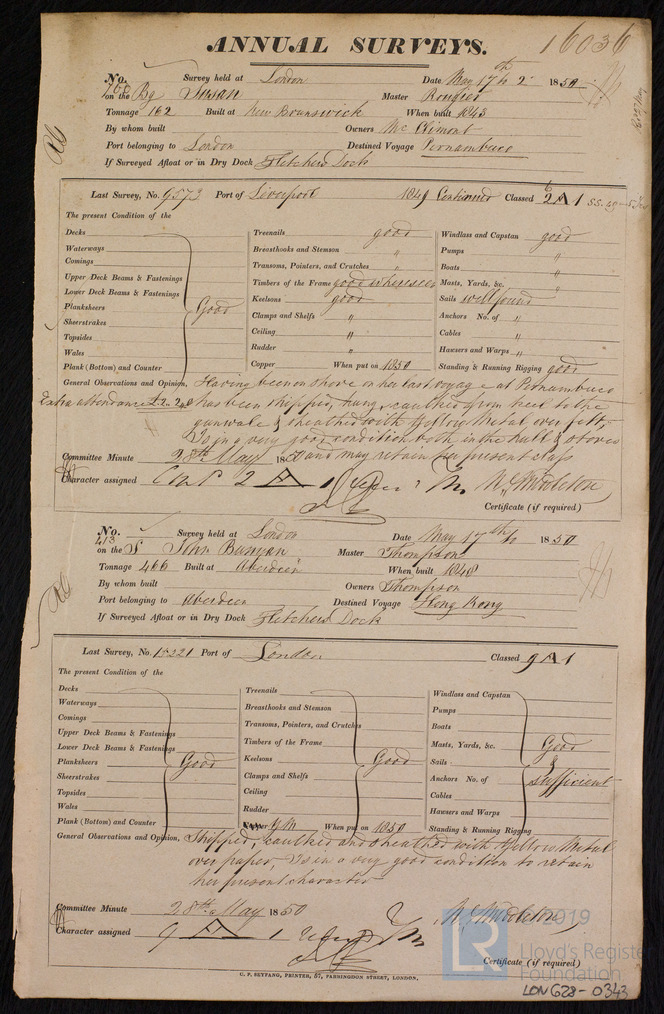 16036
ANNUAL SURVEYS.
No. 768 Survey held at London Date May 17th to 2 1850
on the Bg Susan Master Rougier
Tonnage 162 Built at New Brunswick When built 1843
By whom built Owners
Port belonging to London Destined Voyage Pernambuco
If Surveyed Afloat or in Dry Dock Fletchers Dock
Last Survey, No. 9573 Port of Liverpool 1849 Continued Classed 2 A 1
The present Condition of the
Decks Treenails good Windlass and Capstan good
Waterways Breasthooks and Stemson " Pumps "
Comings Transoms, Pointers, and Crutches " Boats "
Upper Deck Beams & Fastenings Timbers of the Frame good where seen Masts, Yards, &c. "
Lower Deck Beams & Fastenings Keelsons good Sails well found
Planksheers Good Clamps and Shelfs " Anchors No. of "
Sheerstrakes Ceiling " Cables "
Topsides Rudder " Hawsers and Warps "
Wales Copper When put on 1850 Standing & Running Rigging good
Plank (Bottom) and Counter
General Observations and Opinion, Having been on shore on her last voyage at Pernambuco
Extra attendance £2.2 has been stripped, hung, caulked from keel to the
gunwale & sheathed with Yellow Metal over felt,
Is in a very good condition both in the hull & stores
and may retain her present class
Committee Minute 28th May 1850
Character assigned 2 A 1 W. Middleton
Certificate (if required)
No. 413 Survey held at London Date May 17th to 1850
on the S John Bunyan Master Thompson
Tonnage 466 Built at Aberdeen When built 1848
By whom built Owners Thompson
Port belonging to Aberdeen Destined Voyage Hong Kong
If Surveyed Afloat or in Dry Dock Fletchers Dock
Last Survey, No. 15221 Port of London Classed 9 A 1
The present Condition of the
Decks Treenails Windlass and Capstan
Waterways Breasthooks and Stemson Pumps
Comings Transoms, Pointers, and Crutches Boats
Upper Deck Beams & Fastenings Timbers of the Frame Masts, Yards, &c. Good
Lower Deck Beams & Fastenings Keelsons Good Sails &
Planksheers Good Clamps and Shelfs Anchors No. of sufficient
Sheerstrakes Ceiling Cables
Topsides Rudder Hawsers and Warps
Wales Copper YM When put on 1850 Standing & Running Rigging
Plank (Bottom) and Counter
General Observations and Opinion, Stripped, caulked and sheathed with Yellow Metal
over paper, Is in a very good condition to retain
her present character
Committee Minute 28th May 1850
Character assigned 9 A 1 W. Middleton
Certificate (if required)
C. F. SEYFANG, PRINTER, 57, FARRINGDON STREET, LONDON.
LR
©2019
Lloyd's Register
Foundation
LON628-0343